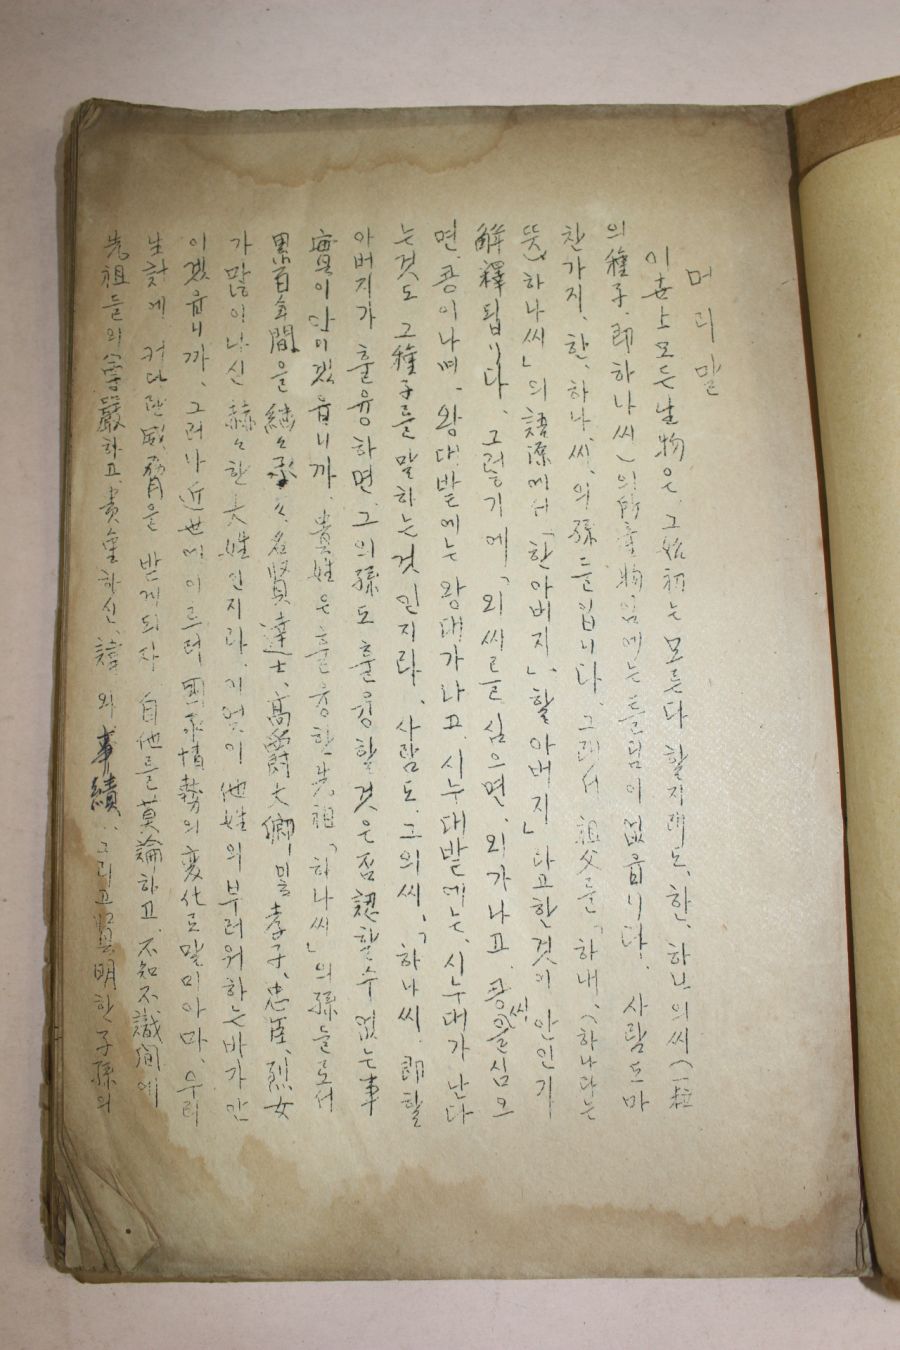 머리말
이世上모든生物은、그始初는모른다할지래도、한、하나의씨(一粒
의種子、即하나씨)의所産物임에는틀림이없읍니다. 사람도마
찬가지、한、하나씨、의孫들입니다、그래서祖父를「하내、(하나다는
뜻)(하나씨」의語源에서「한아버지」、할아버지」라고한것이안인기
解釋됩니다、그렇기에「외씨를심으면、외가나고、콩씨을심으
면、콩이나며、왕대밭에는왕대가나고、시누대밭에는、시누대가난다
는것도그種子를말하는것인지라、사람도、그의씨、「하나씨、即할
아버지가훌융하면、그의孫도훌융할것은否認할수없는事
實이안이겠읍니까、貴姓은훌융한先祖「하나씨」의孫들로서
累百年間을繼々承々、名賢達士、高爵大卿、및孝子、忠臣、烈女
가많이나신赫々한大姓인지라、기엇이他姓의부러워하는바가안
이겠읍니까、그러나近世에이르러國家情勢의変化로말미아마、우리
生計에、커다란威脅을받게되자、自他를莫論하고、不知不識間에
先祖들의尊嚴하고、貴重하신、諱와事績、그리고賢明한子孫의